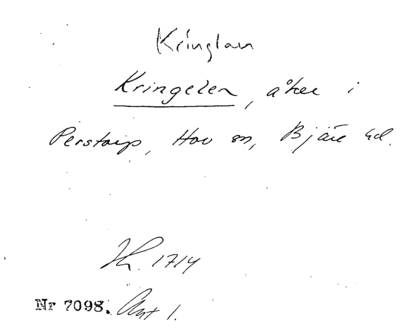 Kringlan
Kringelen, åker i
Perstorp, Hov sn, Bjäre hd.
Jk. 1714
Nr 7098. Akt 1.